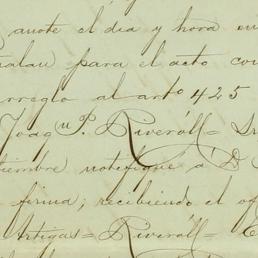 anote el dia y hora en
ñalau para el acto con
arreglo al artº 425
Joaqn P. Riveróll= 
tiembre notefiqué á D
firma; recibiendo el of
Artigas= Riveróll=